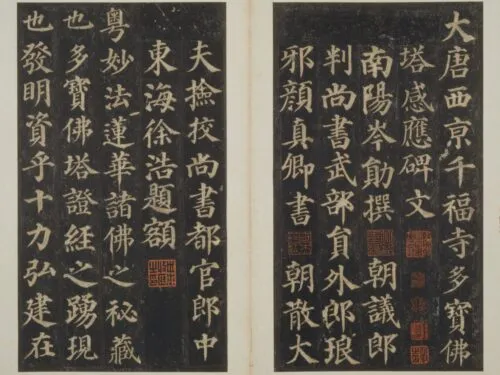 大唐西亰千福寺多寶佛
塔感應碑文
南陽岑勛撰 朝議郎
判尚書武部貟外郎琅
邪顏真卿書 朝散大
夫撿挍尚書都官郎中
東海徐浩題額
粵妙法蓮華諸佛之秘藏
也多寶佛塔證經之踴現
也發明資乎十力弘建在